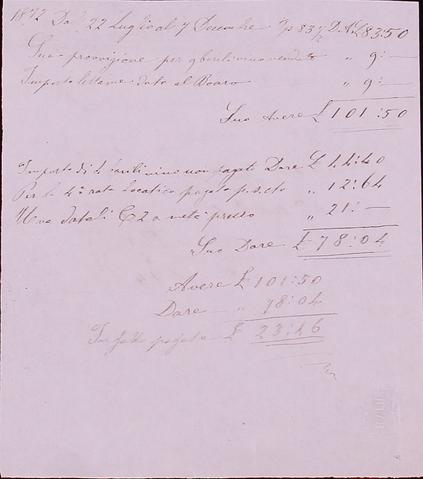 1872 Dal 22 Luglio al 7 Dicembre Gs 83 1/2 D.A. £ 83:50
Sua provvigione per 9 barili vino venduto " 9:—
Importo letame dato al Boaro " 9:—
Suo Avere £ 101:50
Importo di 4 barili vino non pagati Dare £ 44:40
Per la 4a rata locatico pagato p. s. cto " 12:64
Uva datali C 2 a metà prezzo " 21:—
Suo Dare £ 78:04
Avere £ 101:50
Dare " 78:04
pagato £ 23:46